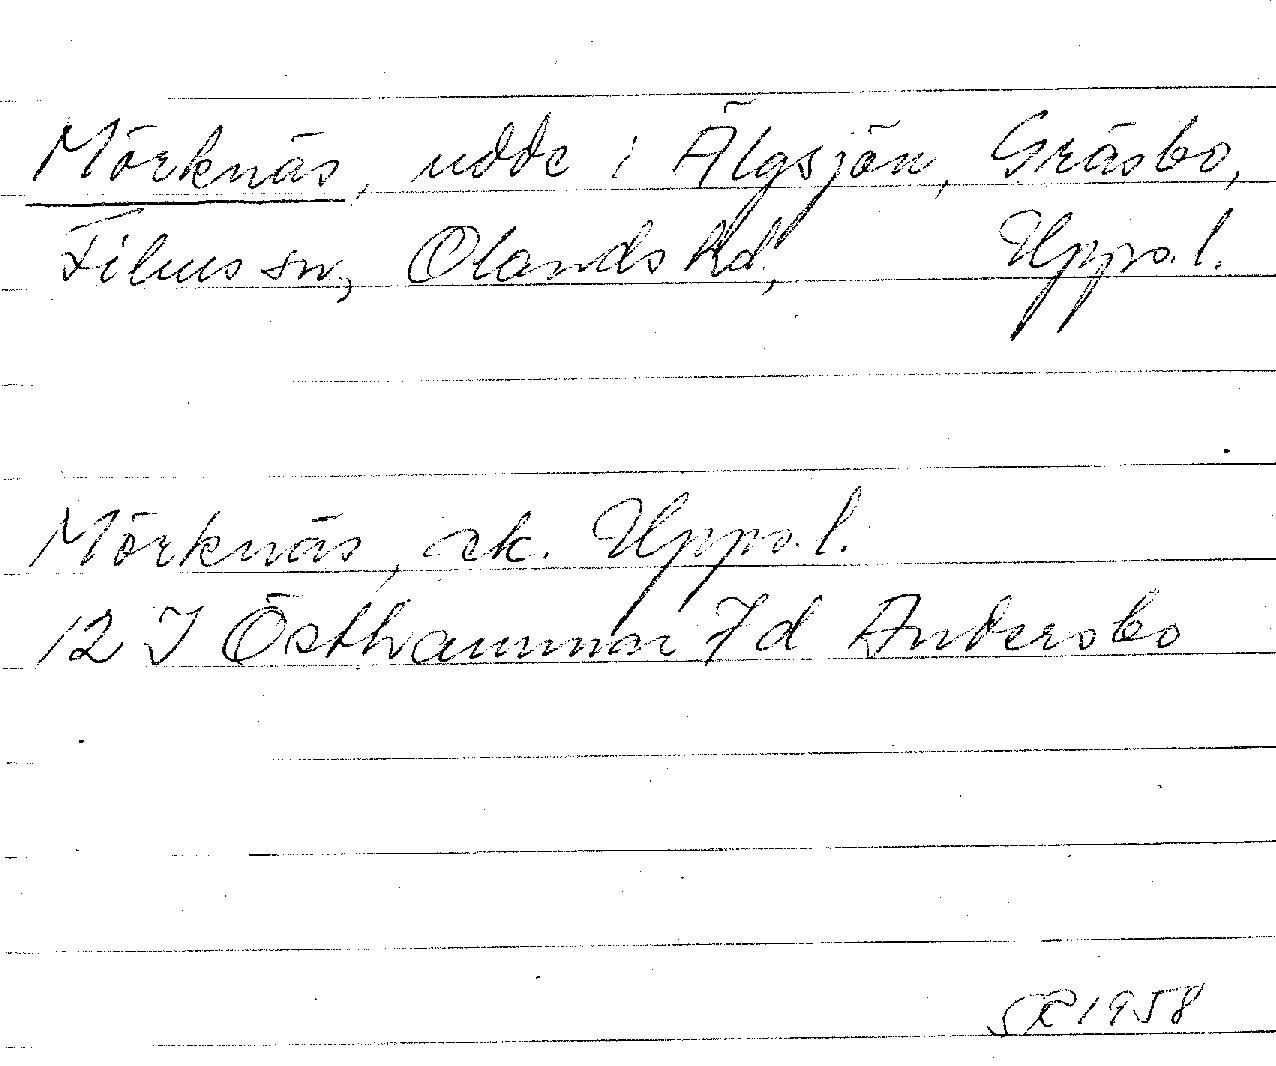 Mörknäs, udde i Älgsjön, Gräsbo,
Films sn, Olands hd, Upps. l.
Mörknäs, ek. Upps. l.
12 I Östhammar 7d Andersbo
1958